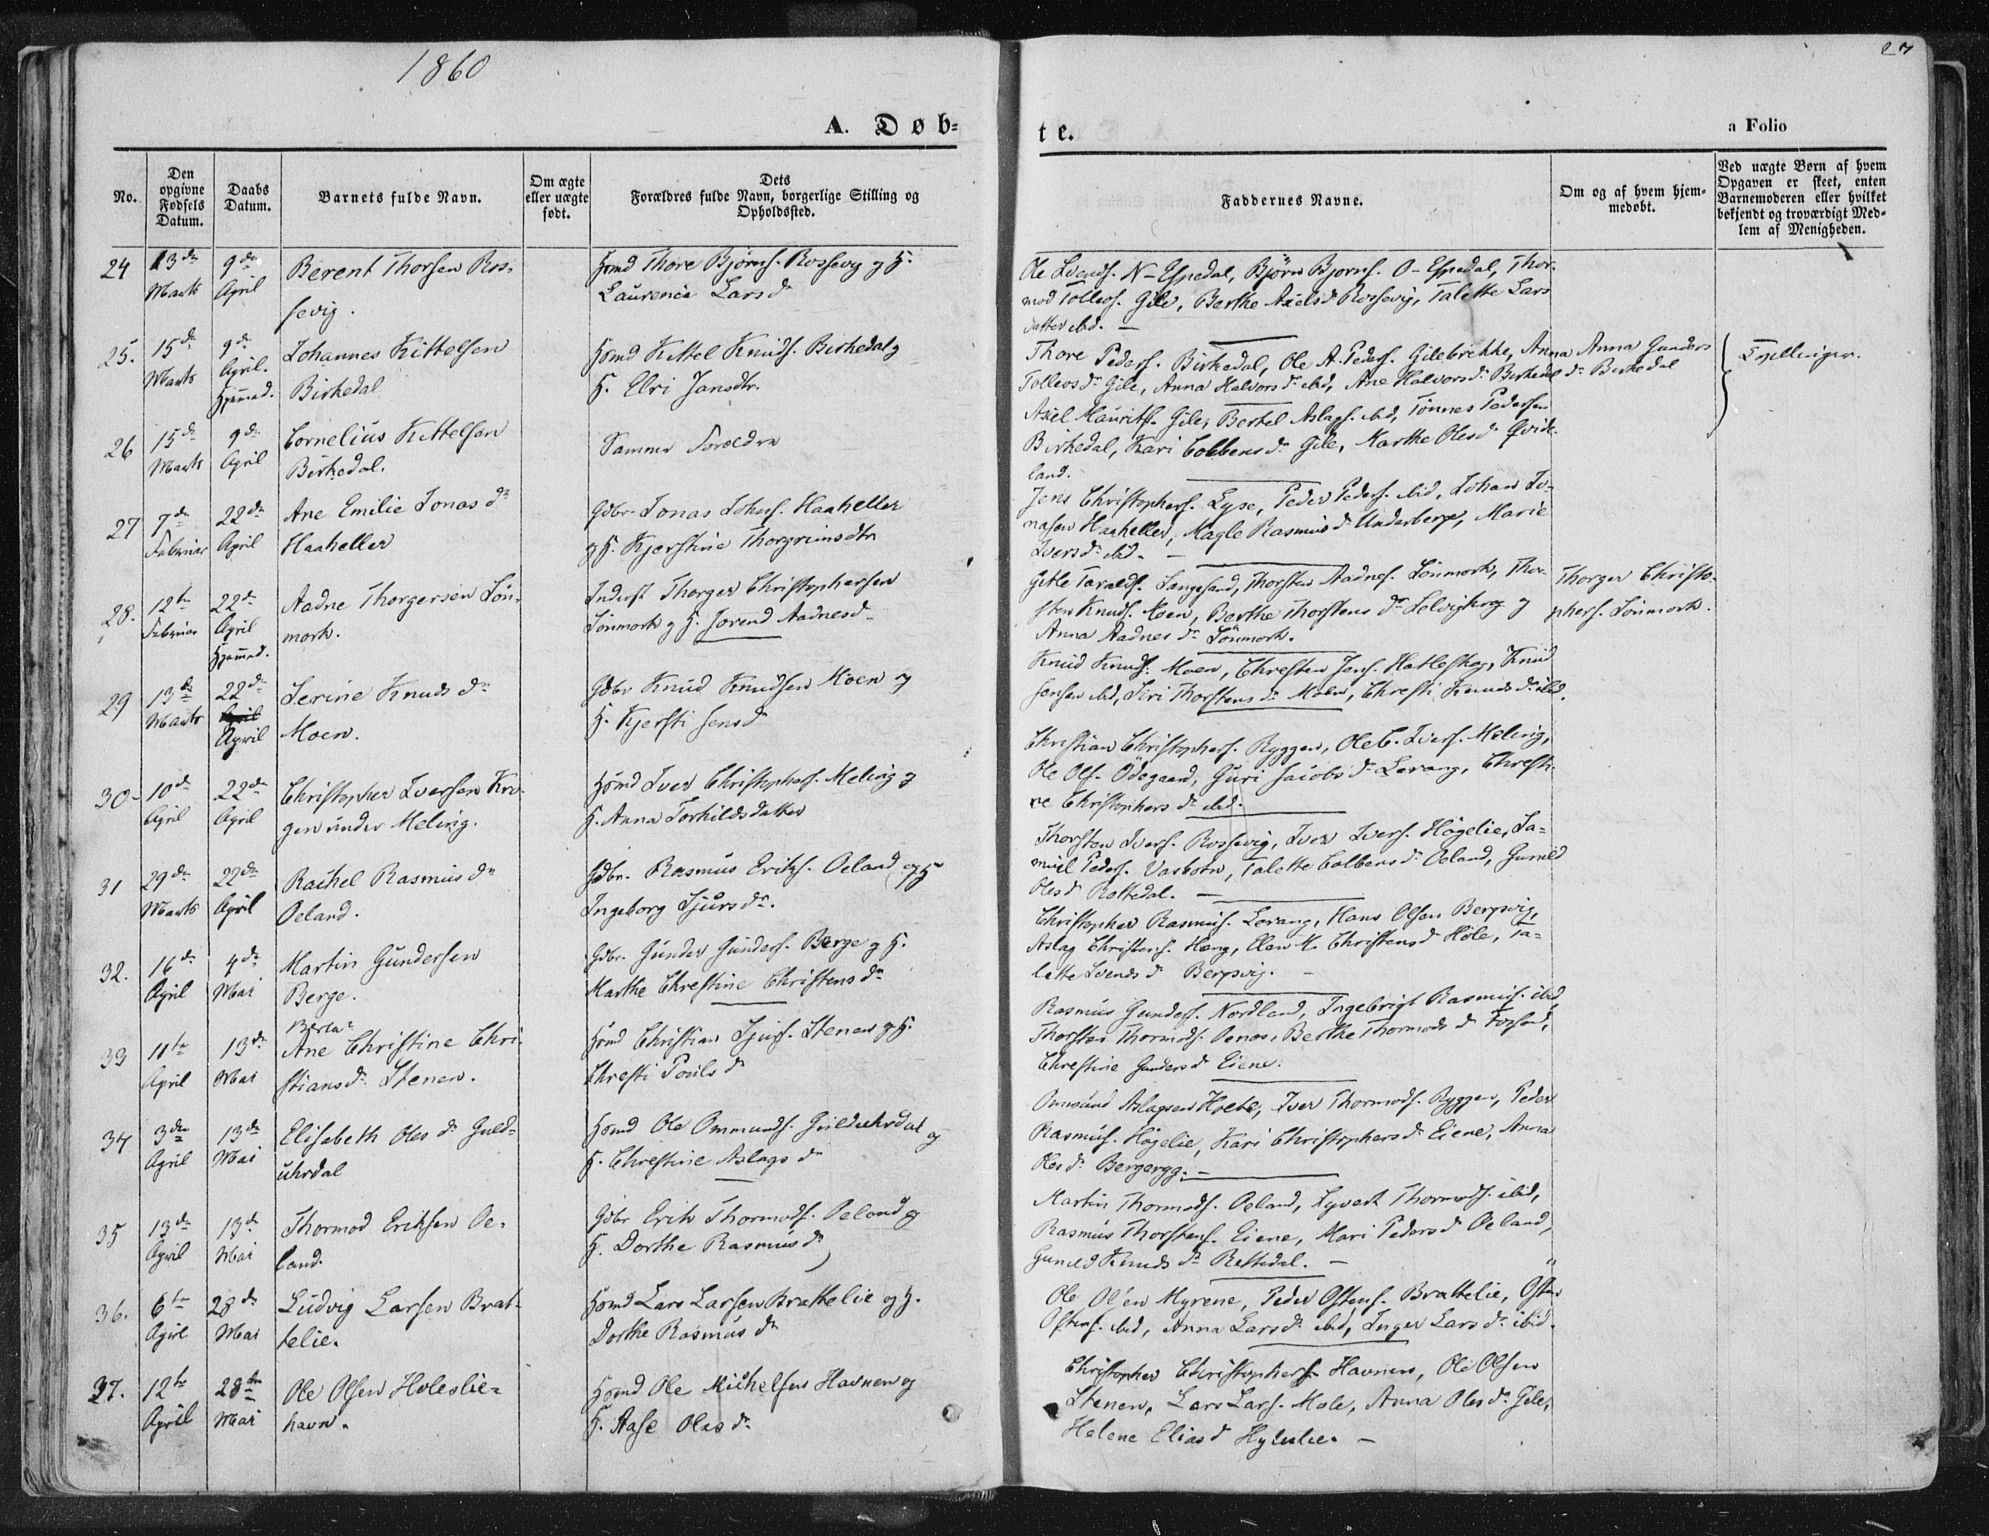 1860
27
A. Døb=
te.
a Folio
No.
Den opgivne Fødsels Datum.
Daabs Datum.
Barnets fulde Navn.
Om ægte eller uægte født.
Dets Forældres fulde Navn, borgerlige Stilling og Opholdssted.
Faddernes Navne.
Om og af hvem hjem-medøbt.
Ved uægte Børn af hvem Opgaven er skeet, enten Barnemoderen eller hvilket bekjendt og troværdigt Med-lem af Menigheden.
24 13de Marts 9de April
Berent Thorsen Ros-
sevig.
Hsmd Thore Bjørns. Rossevig og H.
Laurencia Larsd
Ole Svends. N-Espedal, Bjørn Bjørns. O-Espedal, Thor-
mod Tollevs. Gile, Berthe Axelsd Rossevig, Talette Lars
datter ibid. —
25. 15de Marts 9de April. Hjemmed.
Johannes Kittelsen
Birkedal
Hsmd Kittel Knuds. Birkedal og
H. Elri Jansdtr.
Thore Peders. Birkedal, Ole A. Peders. Gilebrekke, Anna
Tollevsdr Gile, Anna Halvorsdr ibid, Ane Halvorsdr Birkedal
Anna Gunders
dr Birkedal
Tvillinger.
26 15de Marts 9de April
Cornelius Kittelsen
Birkedal.
Samme Forældre
Axel Maurits. Gile, Bertel Aslags. ibid, Tønnes Pedersen
Birkedal, Kari Colbensdr Gile, Marthe Olesdr Qvide-
land.
27 7de Februar 22de April
Ane Emilie Jonasdr
Haaheller
Gdbr. Jonas Johns. Haaheller
og H. Kjerstine Thorgrimsdtr
Jens Christophers. Lyse, Peder Peders. ibid, Johan Jo-
nasen Haaheller, Magle Rasmusdr Underberge, Marie
Iversdr ibid. —
28. 12te Februar 22de April Hjemmed.
Aadne Thorgersen Løn-
mork.
Inderst Thorger Christophersen
Lønmork og H. Jorend Aadnesd
Gitle Taralds. Langesand, Thorsten Aadnes. Lønmork, Thor-
sten Knuds. Moen, Berthe Thorstensdr Selvigberg og
Anna Aadnesdr Lønmork.
Thorger Christo-
phers. Lønmork.
29 13de Marts 22de April
April
Serine Knudsdr
Moen.
Gdbr Knud Knudsen Moen og
H. Kjersti Jensd
Knud Knuds. Moen, Christen Jens. Hatleskog, Knud
Jensen ibid, Siri Thorstensdr Moen, Christi Knudsdr ibid.
30- 10de April 22de April
Christopher Iversen Kro-
gen under Meling.
Hsmd Iver Christophers. Meling og
H. Anna Torkildsdatter
Christian Christophers. Ryggen, Ole C. Ivers. Meling,
Ole Ols. Ødegaard, Guri Jacobsdr Levang, Christi-
ne Christophersdr ibid.
31 29de Marts 22de April
Rachel Rasmusdr
Oeland.
Gdbr. Rasmus Eriks. Oeland og H
Ingeborg Sjursdr.
Thorsten Ivers. Rossevig, Iver Ivers. Høgelie, Sa-
muel Peders. Vasbotn, Talette Colbensdr Oeland, Gunild
Olesd Rettedal. —
32. 16de April 4de Mai
Martin Gundersen
Berge.
Gdbr. Gunder Gunders. Berge og H.
Marthe Christine Christensdr
Christopher Rasmus. Levang, Hans Olsen Bergsvig,
Aslag Christens. Haug, Elen M. Christensd Høle, Ta-
lette Svendsdr Bergsvig. —
33 11te April 13de Mai
Berta
Ane Christine Chri-
stiansdr Stenen.
Hsmd Christian Sjurs. Stenen og H.
Christi Poulsdr
Rasmus Gunders. Nordland, Ingebrigt Rasmus. ibid,
Thorsten Thormods. Oenos, Berthe Thormodsdr Forsand,
Christine Gundersd Eiene.
34 3die April 13de Mai
Elisabeth Olesdr Guld-
uhrdal
Hsmd Ole Ommunds. Gulduhrdal og
H. Christine Aslagsdr
Ommund Aslagsen Holte, Iver Thormods. Ryggen, Peder
Rasmus. Høgelie, Kari Christophersdr Eiene, Anna
Olesdr Bergerygg. —
35 13de April 13de Mai
Thormod Eriksen Oe-
land.
Gdbr Erik Thormods. Oeland og
H. Dorthe Rasmusdr
Martin Thormods. Oeland, Syvert Thormods. ibid,
Rasmus Thorstens. Eiene, Mari Pedersdr Oeland,
Gunild Knudsdr Rettedal. —
36. 6te April 28de Mai
Ludvig Larsen Brat-
telie.
Hsmd Lars Larsen Brattelie og H.
Dorthe Rasmusdr
Ole Olsen Myrene, Peder Ostens. Brattelie, Osten
Ostens. ibid, Anna Larsdr ibid, Inger Larsdr ibid.
37. 12te April 28de Mai
Ole Olsen Holeslie-
havn.
Hsmd Ole Michelsen Havnen og
H. Aase Olesdr
Christopher Christophers. Havnen, Ole Olsen
Stenen, Lars Lars. Mole, Anna Olesdr Gile,
Helene Eliasd Hylelie. —